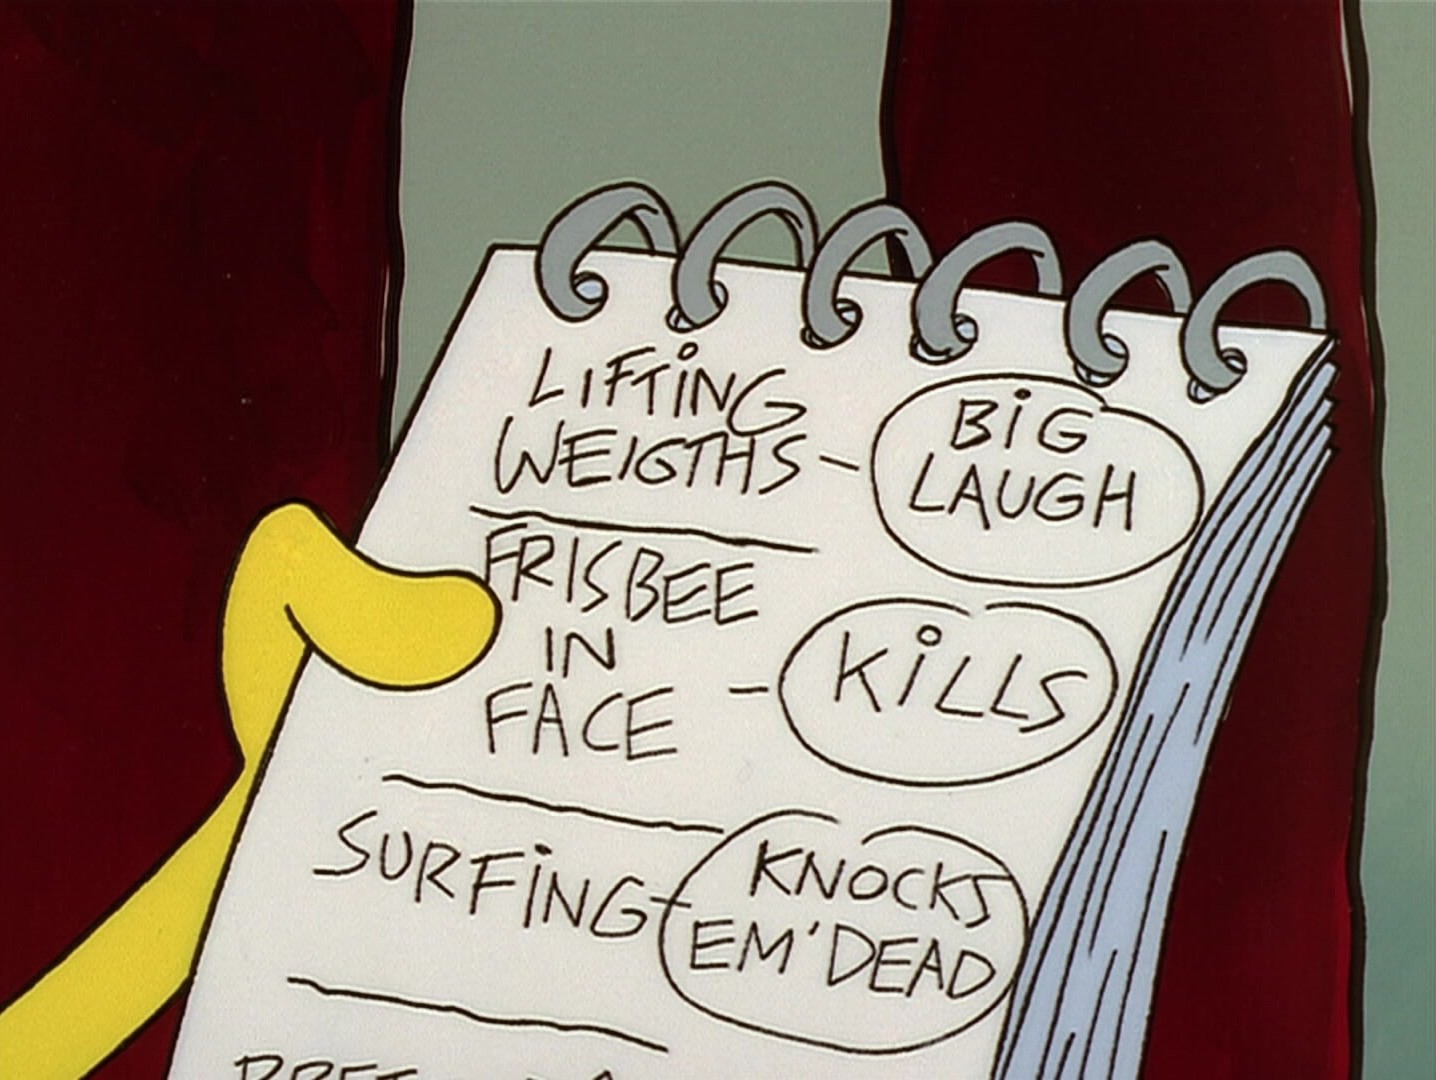 LIFTING
WEIGTHS - BIG
LAUGH
FRISBEE
IN
FACE - KILLS
SURFING - KNOCKS
EM'DEAD